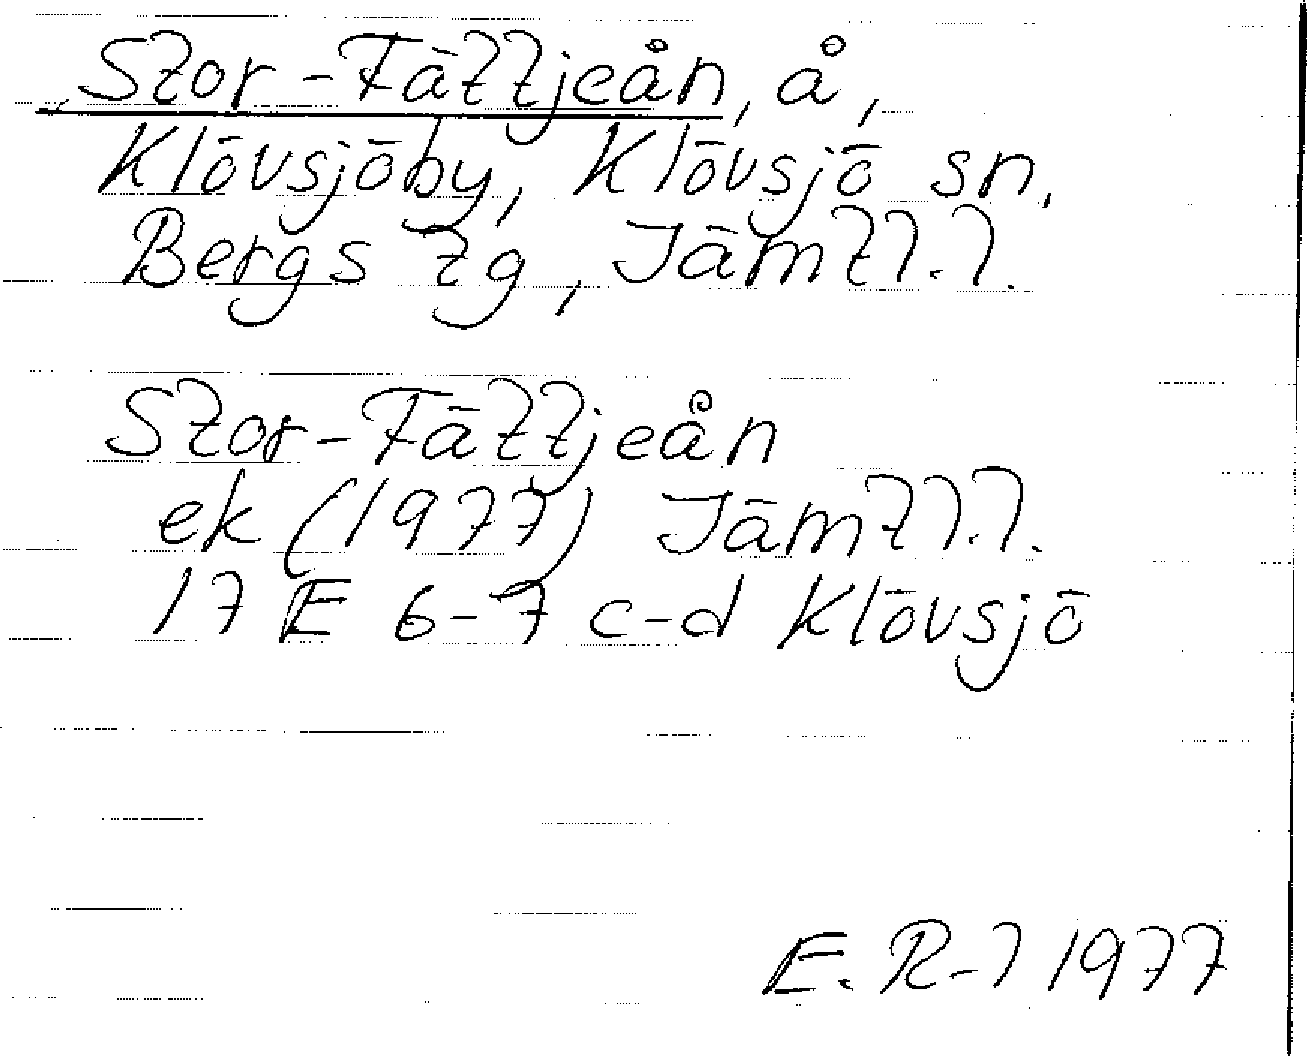 Stor-Fättjeån, å,
Klövsjöby, Klövsjö sn,
Bergs tg, Jämtl.l.
Stor-Fättjeån
ek (1977) Jämtl.l.
17 E 6-7 c-d Klövsjö
E. R-l 1977